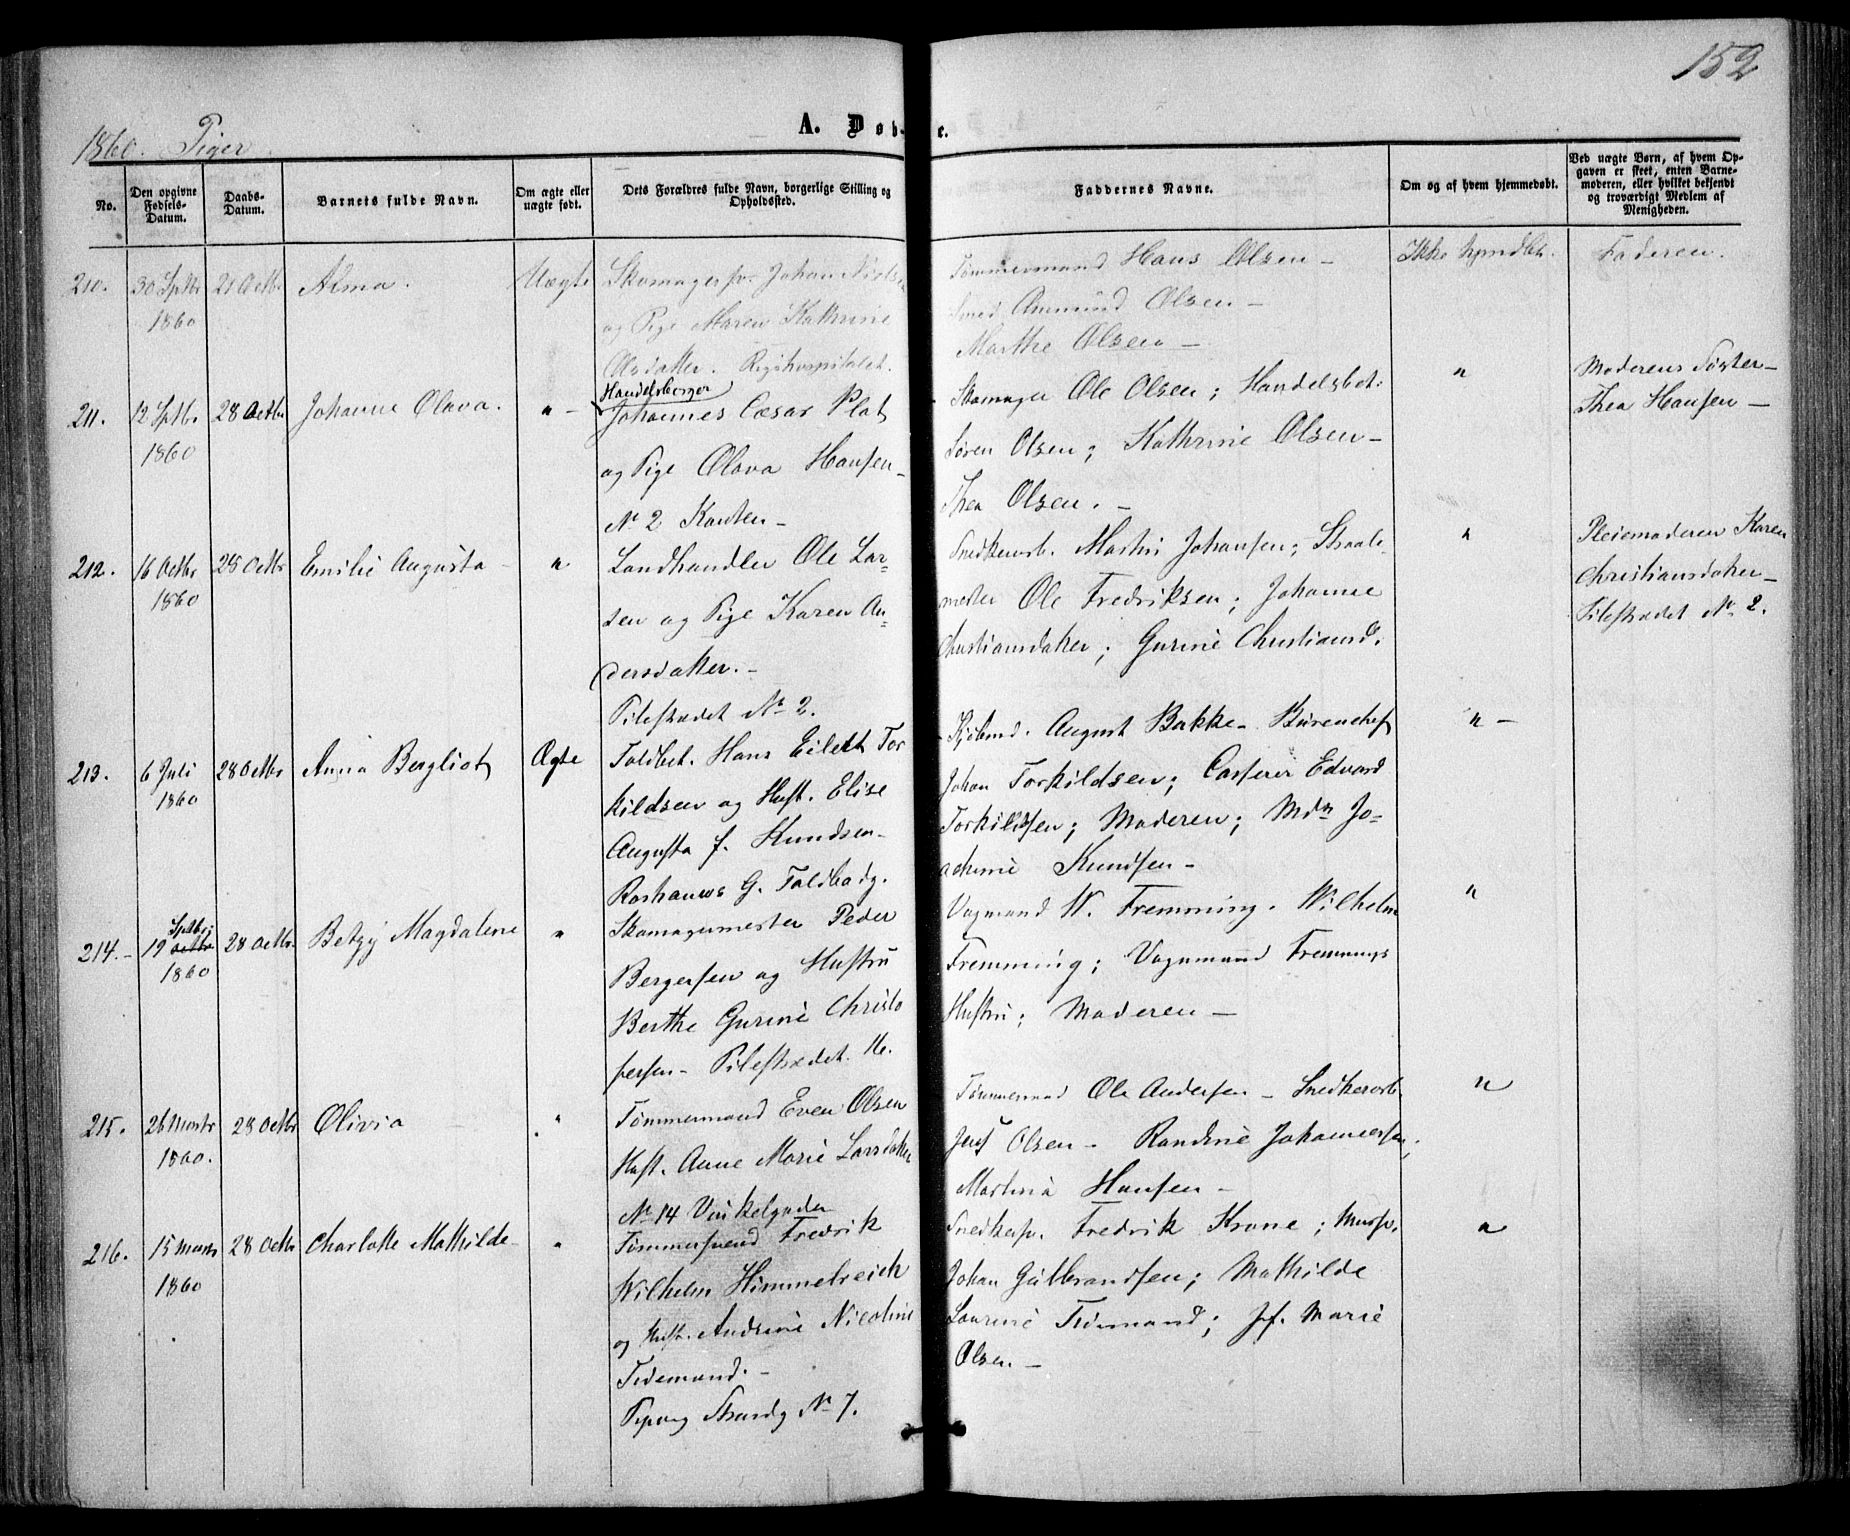 152
1860. Piger.
A. Døb-
e.
No.
Den opgivne Fødsels-Datum.
Daabs-Datum.
Barnets fulde Navn.
Om ægte eller uægte født.
Dets Forældres fulde Navn, borgerlige Stilling og Opholdssted.
Faddernes Navne.
Om og af hvem hjemmedøbt.
Ved uægte Børn, af hvem Opgaven er skeet, enten Barnemoderen, eller hvilket bekjendt og troværdigt Medlem af Menigheden.
210.
30 Sptbr
1860
21 Octbr
Alma.
Uægte
Skomagersv. Johan Nielsen
og Pige Maren Kathrine
Olsdatter. Rigshospitalet.
Tømmermand Hans Olsen –
Smed Ammund Olsen –
Marthe Olsen –
Ikke hjmdbt.
Faderen.
211.
12 Sptbr.
1860
28 Octbr
Johanne Olava.
" –
Handelsborger
Johannes Cæsar Plat
og Pige Olava Hansen –
No 2 Kanten –
Skomager Ole Olsen; Handelsbet.
Søren Olsen; Kathrine Olsen –
Thea Olsen. –
"
Moderens Søster –
Thea Hansen –
212.
16 Octbr
1860
28 Octbr
Emilie Augusta –
"
Landhandler Ole Lar-
sen og Pige Karen An-
dersdatter. –
Pilestrædet No 2.
Snedkerarb. Martin Johansen; Straale-
mester Ole Fredriksen; Johanne
Christiansdatter; Gurine Christiansd.
"
Pleiemoderen Karen
Christiansdatter –
Pilestrædet No 2.
213.
6 Juli
1860
28 Octbr
Anna Bergliot
Ægte
Toldbet. Hans Eilert Tor
kildsen og Hust. Elise
Augusta f. Knudsen –
Roshaures G. Toldbodg.
Kjøbmd. August Bakke – Bureauchef
Johan Torkildsen; Casserer Edvard
Torkildsen; Moderen; Mdm Jo-
achime Knudsen –
" –
214. –
Sptbr;
19 Octbr
1860
28 Octbr.
Betzy Magdalene
"
Skomagermester Peder
Bergersen og Hustru
Berthe Gurine Christo
fersen – Pilestrædet 16.
Vognmand W. Fremming. Wilhelm
Fremming; Vognmand Fremmings
Hustru; Moderen –
"
215.
26 Marts
1860.
28 Octbr
Olivia
"
Tømmermand Even Olsen
Hust. Anne Marie Larsdatter
No 14 Vinkelgaden
Tømmermad Ole Andersen – Snedkerarb.
Olsen – Randine Johannessen;
Martinia Hansen –
"
216.
15 Marts
1860
28 Octbr
Charlotte Mathilde –
"
Tømmersvend Fredrik
Wilhelm Himmelreich
og Hust. Andrine Nicoline
Tidemand. –
Pipervg Strandg No 7.
Snedkersv. Fredrik Krone; Mursv.
Johan Gulbrandsen; Mathilde
Laurine Tidemand; Jf. Marie
Olsen –
"